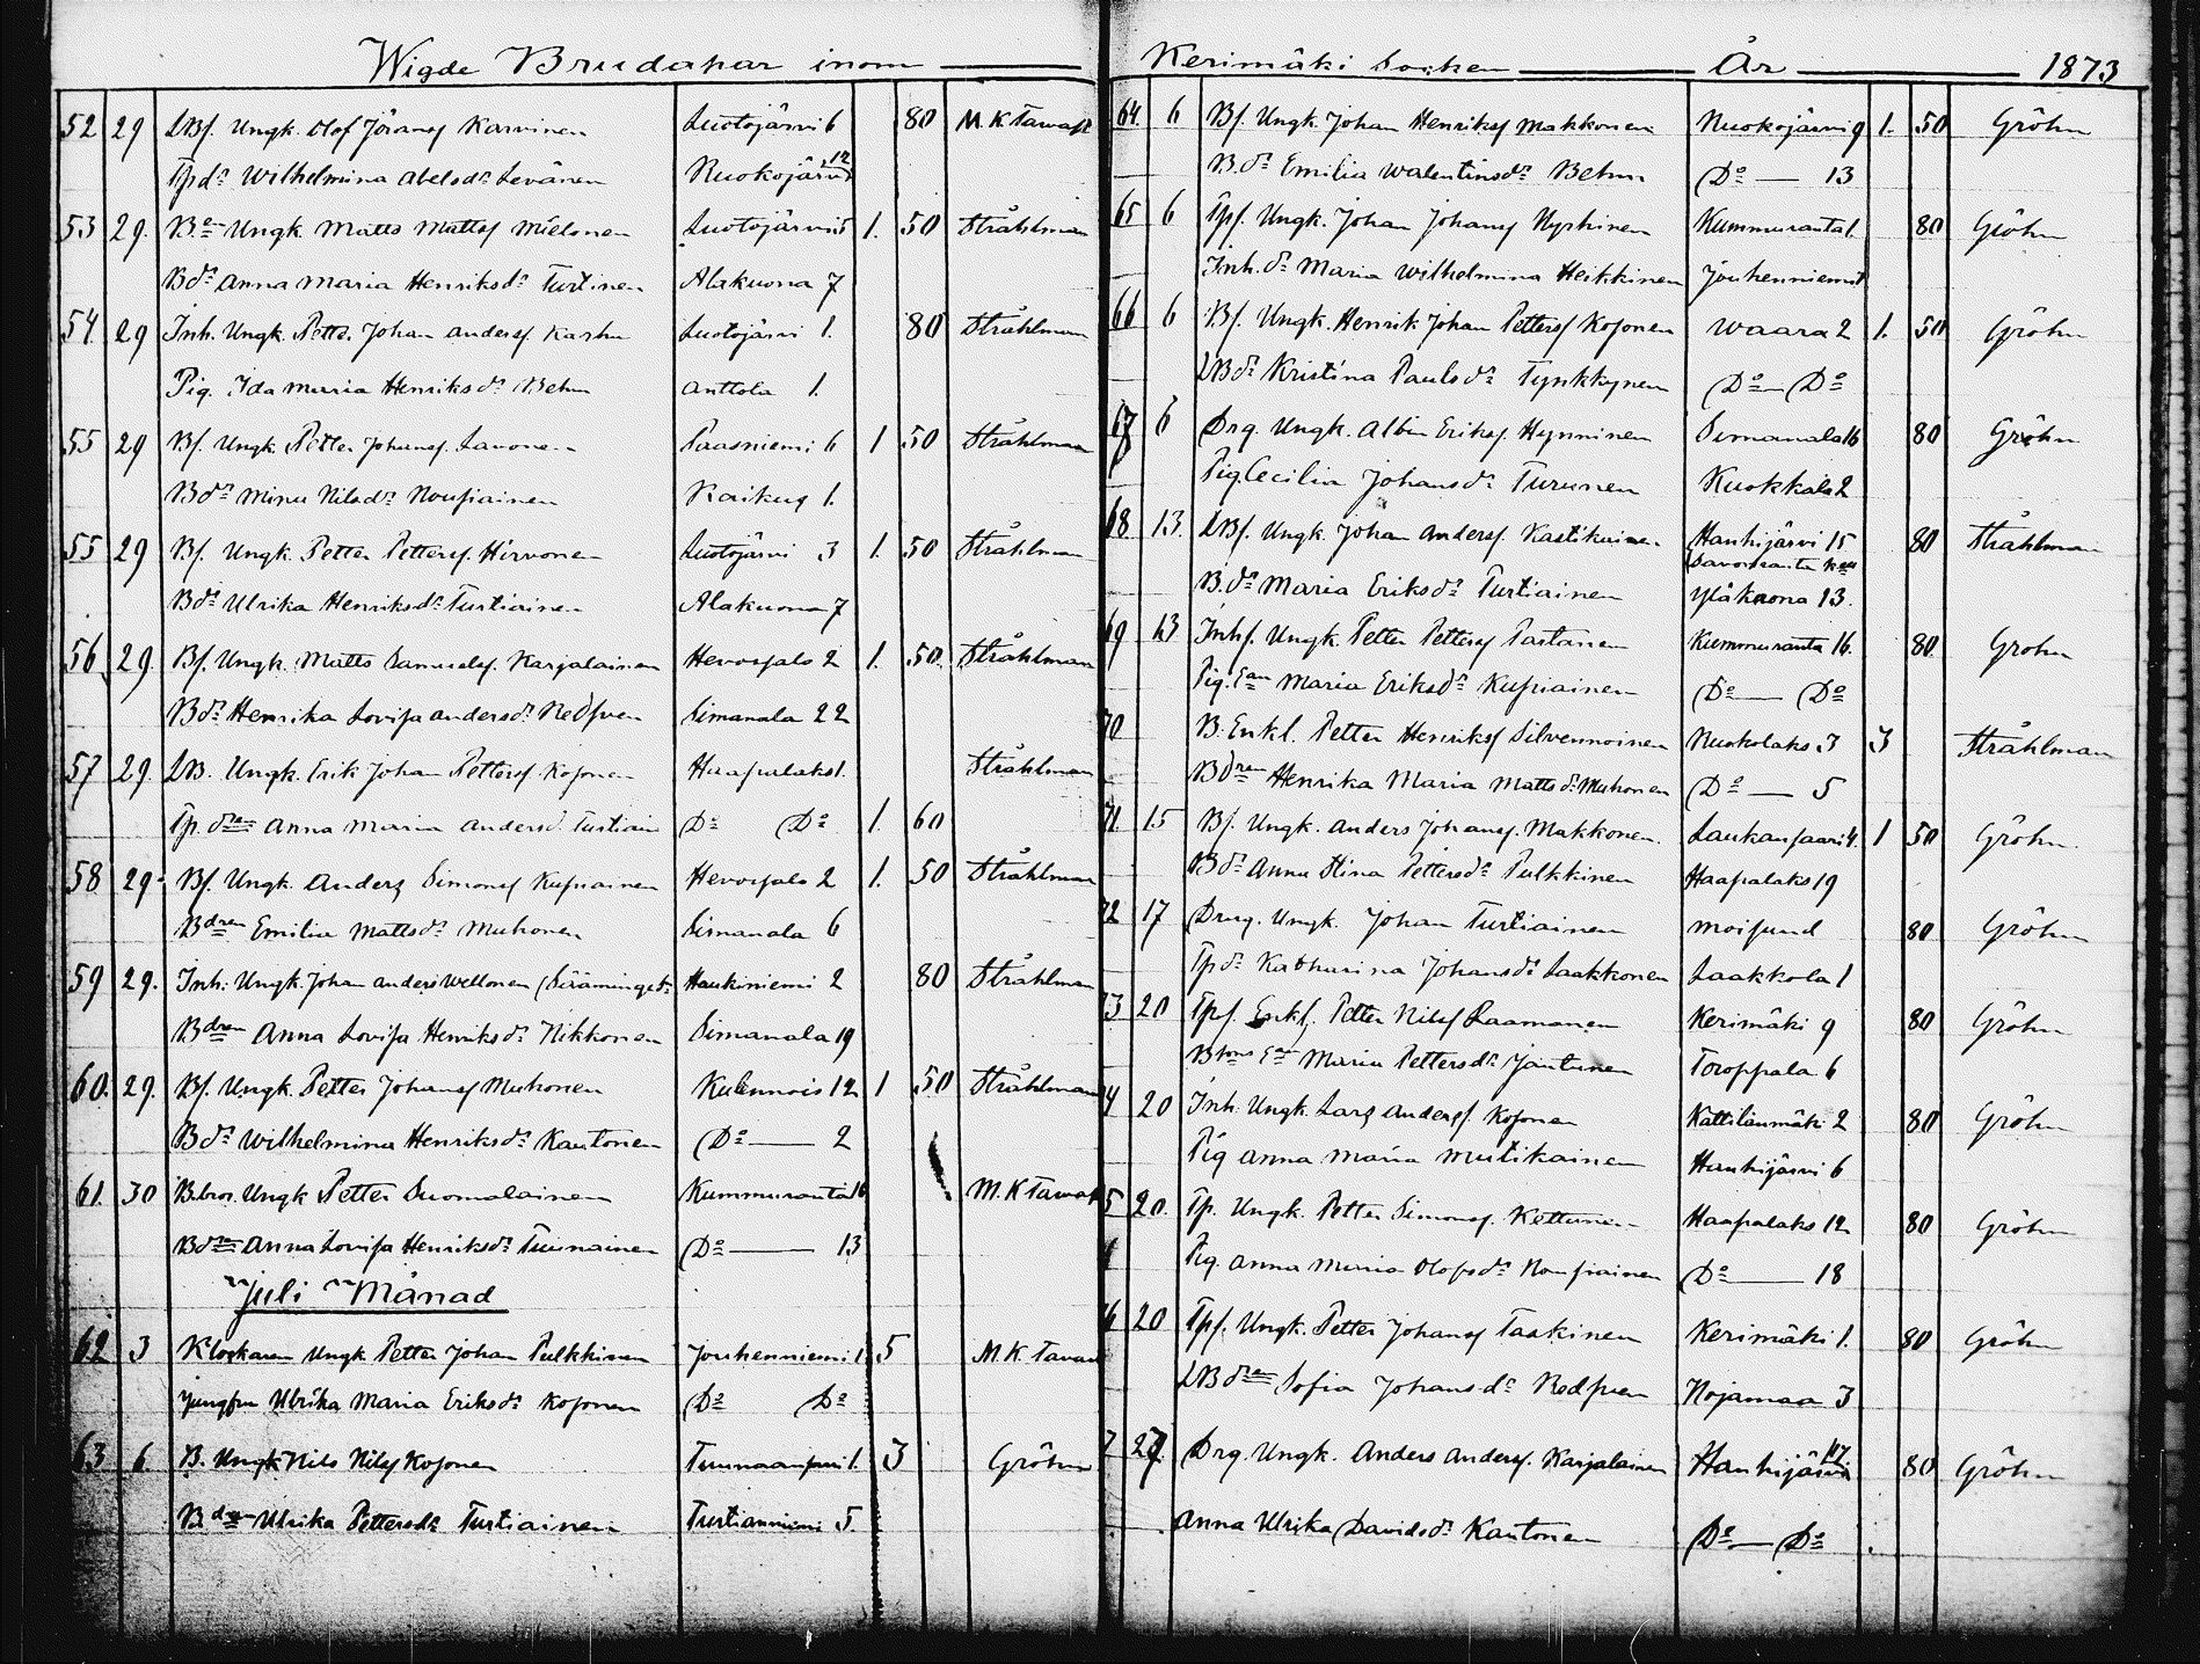 Wigde Brudapar inom
52 29 LBf. Ungk. Olof Jöransf Karvinen Luotojärvi 6 80 M. K. Tawast
Tpdr Wilhelmina Abelsdr Levänen Ruokojärvi 12
53 29. Bn Ungk. Matts Mattsf Mielonen Luotojärvi 5 1. 50 Stråhlman
Bdr Anna Maria Henriksdr Turtinen Alakuona 7
54 29 Inh. Ungk. Petts. Johan Andersf. Karhu Luotojärvi 1. 80 Stråhlman
Pig. Ida Maria Henriksdr Behm Anttola 1.
55 29 Bf. Ungk. Petter Johansf. Lavonen Paasniemi 6 1 50 Stråhlman
Bdr Minu Nilsdr Noufiainen Raikuu 1.
55 29 Bf. Ungk. Petter Pettersf. Hirvonen Luotojärvi 3 1. 50 Stråhlman
Bdr Ulrika Henriksdr Turtiainen Alakuona 7
56 29 Bf. Ungk. Matts Samuelsf. Karjalainen Hevosfalo 2 1. 50. Stråhlman
Bdr Henrika Lovifa Andersdr Redfven Simanala 22
57 29 LB. Ungk. Erik Johan Pettersf Kofonen Haapalaks 1. Stråhlman
Tp. drn Anna Maria Andersd. Turtiain Do Do 1. 60
58 29. Bf. Ungk. Anders Simonsf Kufiainen Hevosfalo 2 1. 50 Stråhlman
Bdren Emilia Mattsdr Muhonen Simanala 6
59 29. Inh: Ungk. Johan Anders Wellonen (Sääminge Haukiniemi 2 80 Stråhlman
Bdren Anna Lovifa Henriksdr Nikkonen Simanala 19
60. 29. Bf. Ungk. Petter Johansf Muhonen Kulennois 12 1 50 Stråhlman
Bdr Wilhelmina Henriksdr Kautonen Do 2
61. 30 B.bror. Ungk Petter Suomalainen Kummuranta 16 M. K Tawast
Bdrn Anna Lovifa Henriksdr Tuunainen Do 13
Juli Månad
62 3 Klockaren Ungk Petter Johan Pulkkinen Jouhenniemi 1. 5 M. K. Tavast
Jungfru Ulrika Maria Eriksdr Kofonen Do Do
63 6. B. Ungk Nils Nilsf Kofonen Tuunaanfaari 1. 3 Gröhn
Bdrn Ulrika Pettersdr Turtiainen Turtianniemi 5.
Kerimäki Socken År 1873
64. 6 Bf. Ungk. Johan Henriksf Makkonen Ruokojärvi 9 1. 50 Gröhn
B.dr Emilia Walentinsdr Behm Do 13
65 6 Tpf. Ungk. Johan Johansf Nyrhinen Kummuranta 1. 80 Gröhn
Inh. dr Maria Wilhelmina Heikkinen Jouhenniemi 1
66 6 Bf. Ungk. Henrik Johan Pettersf Kofonen Waara 2 1. 50 Gröhn
LBdr Kristina Paulsdr Tynkkynen Do Do
67 6 Drg. Ungk. Albin Eriksf. Hynninen Simanala 16 80 Gröhn
Pig Cecilia Johansdr Turunen Ruokkala 2
68 13. LBf. Ungk. Johan Andersf. Kastikainen Hanhijärvi 15 80 Stråhlman
(Savonranta
B.dr Maria Eriksdr Turtiainen Yläkuona 13.
69 13 Inhf. Ungk. Petter Pettersf Partanen Kummuranta 16. 80 Gröhn
Pig. Ean Maria Eriksdr Kufiainen Do Do
70 B. Enkl. Petter Henriksf Silvennoinen Ruokolaks 3 3 Stråhlman
Bdren Henrika Maria Mattsdr Muhonen Do 5
71. 15 Bf. Ungk. Anders Johansf. Makkonen Laukanfaari 4. 1 50 Gröhn
Bdr Anna Stina Pettersdr Pulkkinen Haapalaks 19
72 17 Drug. Ungk. Johan Turtiainen Moifund 80 Gröhn
Tpdr Katharina Johansdr Laakkonen Laakkola 1
73 20 Tpf. Enkl. Petter Nilsf Laamanen Kerimäki 9 80 Gröhn
Btors Ean Maria Pettersdr Jantunen Toroppala 6
4 20 Inh. Ungk. Lars Andersf. Kofonen Kattilanmäki 2 80 Gröhn
Pig Anna Maria Mutikainen Hanhijärvi 6
5 20. Tp. Ungk. Petter Simonsf. Kettunen Haapalaks 12 80 Gröhn
Pig. Anna Maria Olofsdr Noufiainen Do 18
6 20 Tpf. Ungk. Petter Johansf Taskinen Kerimäki 1. 80 Gröhn
LBdren Sofia Johansdr Redfven Nojamaa 3
7 27 Drg. Ungk. Anders Andersf. Karjalainen Hanhijärvi 17 80 Gröhn
Anna Ulrika Davidsdr Kautonen Do Do